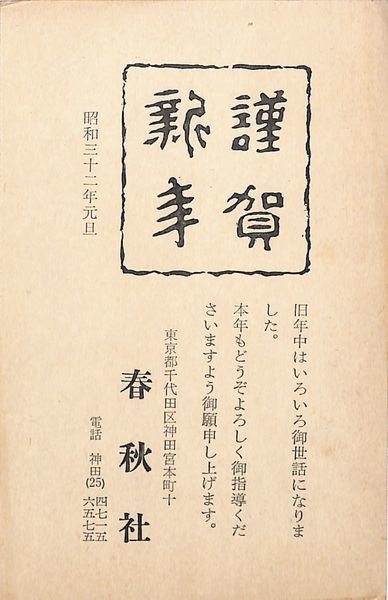 謹賀
新年
旧年中はいろいろ御世話になりま
した。
本年もどうぞよろしく御指導くだ
さいますよう御願申し上げます。
昭和三十二年元旦
東京都千代田区神田宮本町十
春秋社
電話 神田(25)四七一五
六五七五